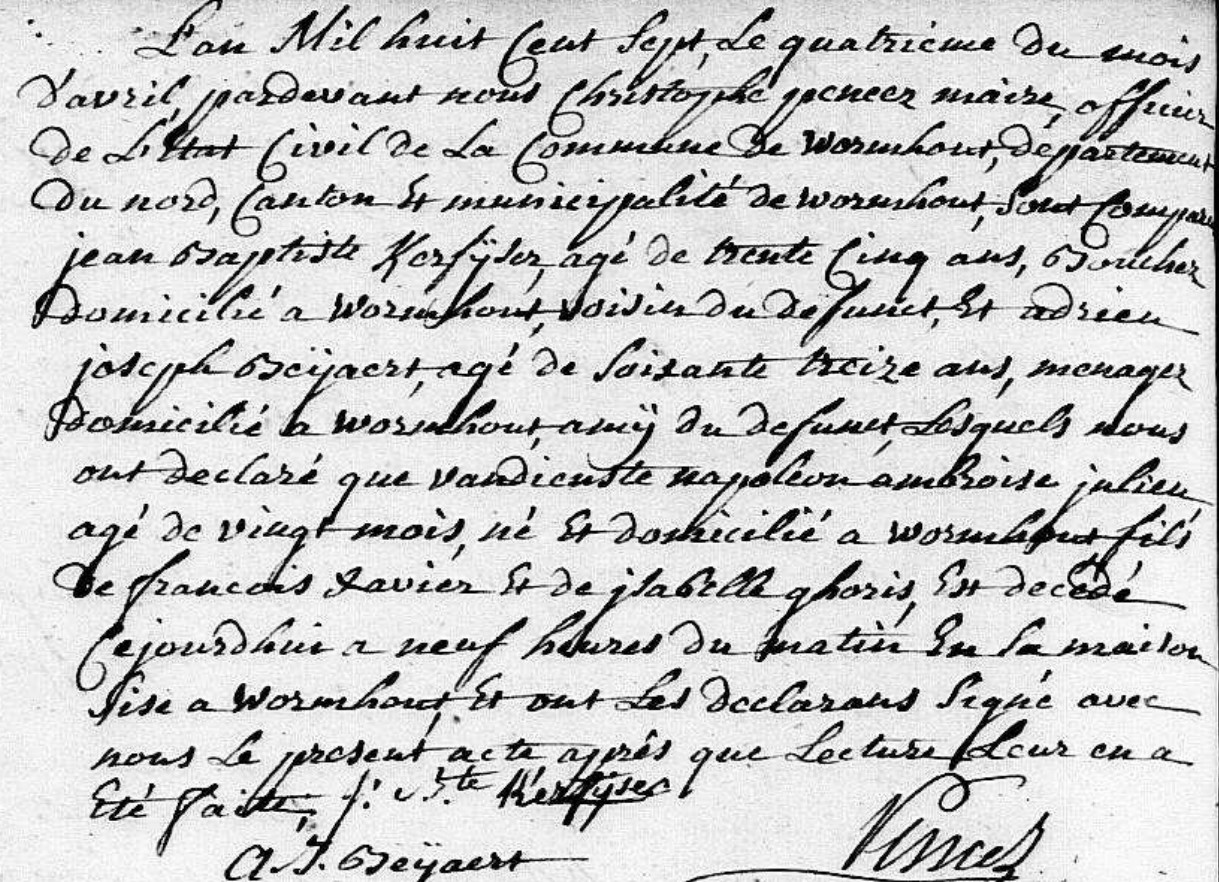 L'an Mil huit Cent Sept, Le quatrieme du mois
D'avril, pardevant nous Christophe maire, officier
de L'Etat Civil de La Commune de wormhout, département
Du nord, Canton Et municipalité de wormhout, Sont Comparu
jean Baptiste Kerfÿser, agé de trente Cinq ans, Boucher
Domicilié a wormhout, voisin du defunct, Et adrien
joseph Beÿaert, agé de Soisante treize ans, menager
Domicilié a wormhout, amÿ du defunct, Lesquels nous
ont declaré que vandienste napoleon ambroise julien,
agé de vingt mois, né Et domicilié a wormhout fils
De francois Xavier Et de jsabelle ghoris, Est decédé
Cejourdhui a neuf heures du matin En Sa maison
Sise a wormhout, Et ont Les declarans Signé avec
nous Le present acte après que Lecture Leur en a
Eté faite, j: B.te Kerfÿser
A.J. Beÿaert